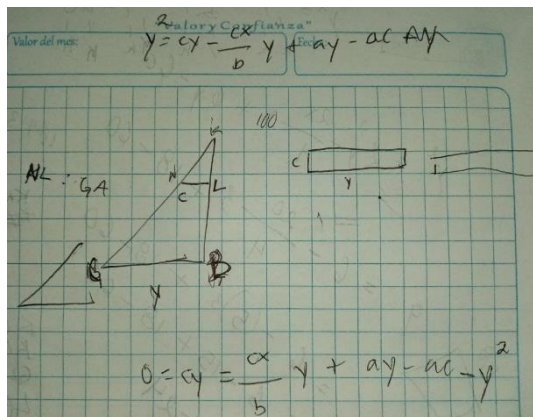 "Valor y Confianza"
Valor del mes:
y² = cy - cx/b y + ay - ac
100
K
N
L
C
NL : GA
G
B
y
C
y
0 = cy = cx/b y + ay - ac - y²